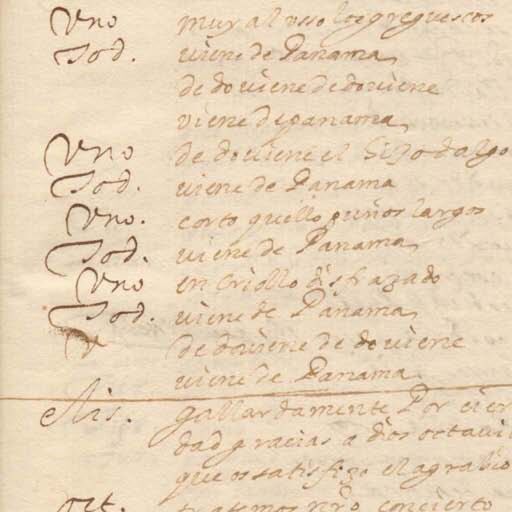 Vno muy al uso los greguescos
Tod. viene de Panama
de do viene de do viene
viene de panama
Vno de do viene el hijo dalgo
Tod. viene de Panama
Vno. corto quello puños largos
Tod. viene de Panama
Vno en criollo disfrazado
Tod. viene de Panama
V de do viene de do viene
viene de Panama
Lis. gallardamente Por cier
dad gracias a dios octaui
que os satisfizo el agrabio
Oct. tratemos nro concierto